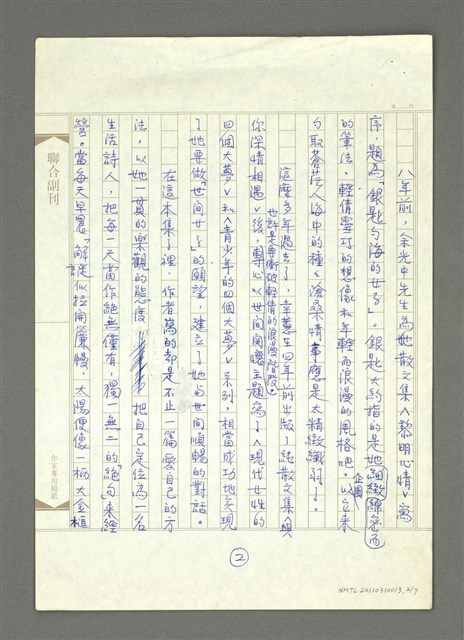 八年前，余光中先生為她散文集《黎明心情》寫
序，題為「銀匙勺海的女子」。銀匙大約指的是她細緻綿密而
的筆法、輕倩靈巧的想像和年輕而浪漫的風格吧。以它來企圖
勺取蒼茫人海中的種種滄桑情事應是太精緻纖弱了。
這麼多年過去了，幸蕙在四年前出版了純散文集《與
也許是要衝破輕倩的浪漫階段。
你深情相遇》後，專心以世間關懷主題寫了《現代女性的
四個大夢》和《青少年的四個大夢》系列，相當成功地表現
了她要做「世間女子」的願望，建立了她與世間順暢的對話。
在這本集子裡，作者寫的都是不止一篇愛自己的方
法，以她一貫的樂觀的態度 把自己定位為一名
生活詩人，把每一天當作絕無僅有，獨一無二的「絕」句來經
營。當每天早晨「解讀似拉開簾幔，太陽便像一柄大金槌
聯合副刊
作家專用稿紙
2
NMTL20110310013_2/7